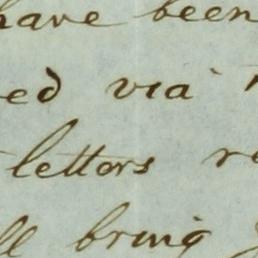 have been
ed via
letters re
ll bring